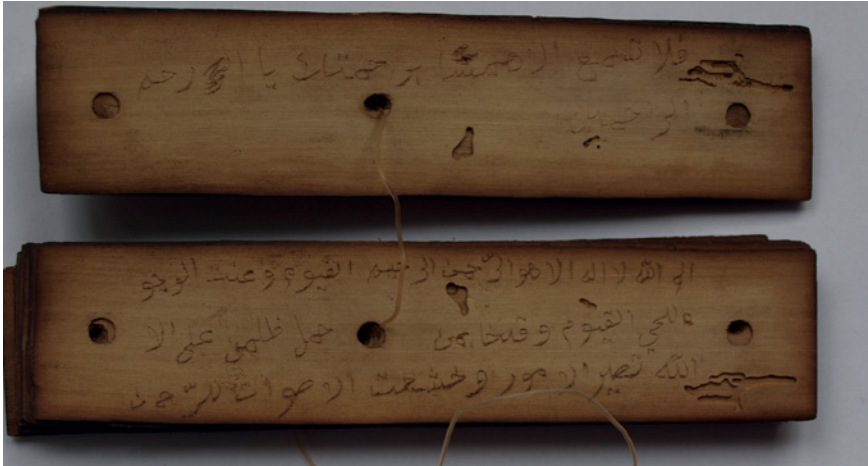 فلا تسمع الا همسا برحمتك يا ارحم
الراحمين
الله لا اله الا هو الرّحمن القيوم وعنت الوجو
ه للحي القيوم وقدخابمن حمل ظلمن على الا
الله تصير الامور وخشعت الاصوات للرّحمن